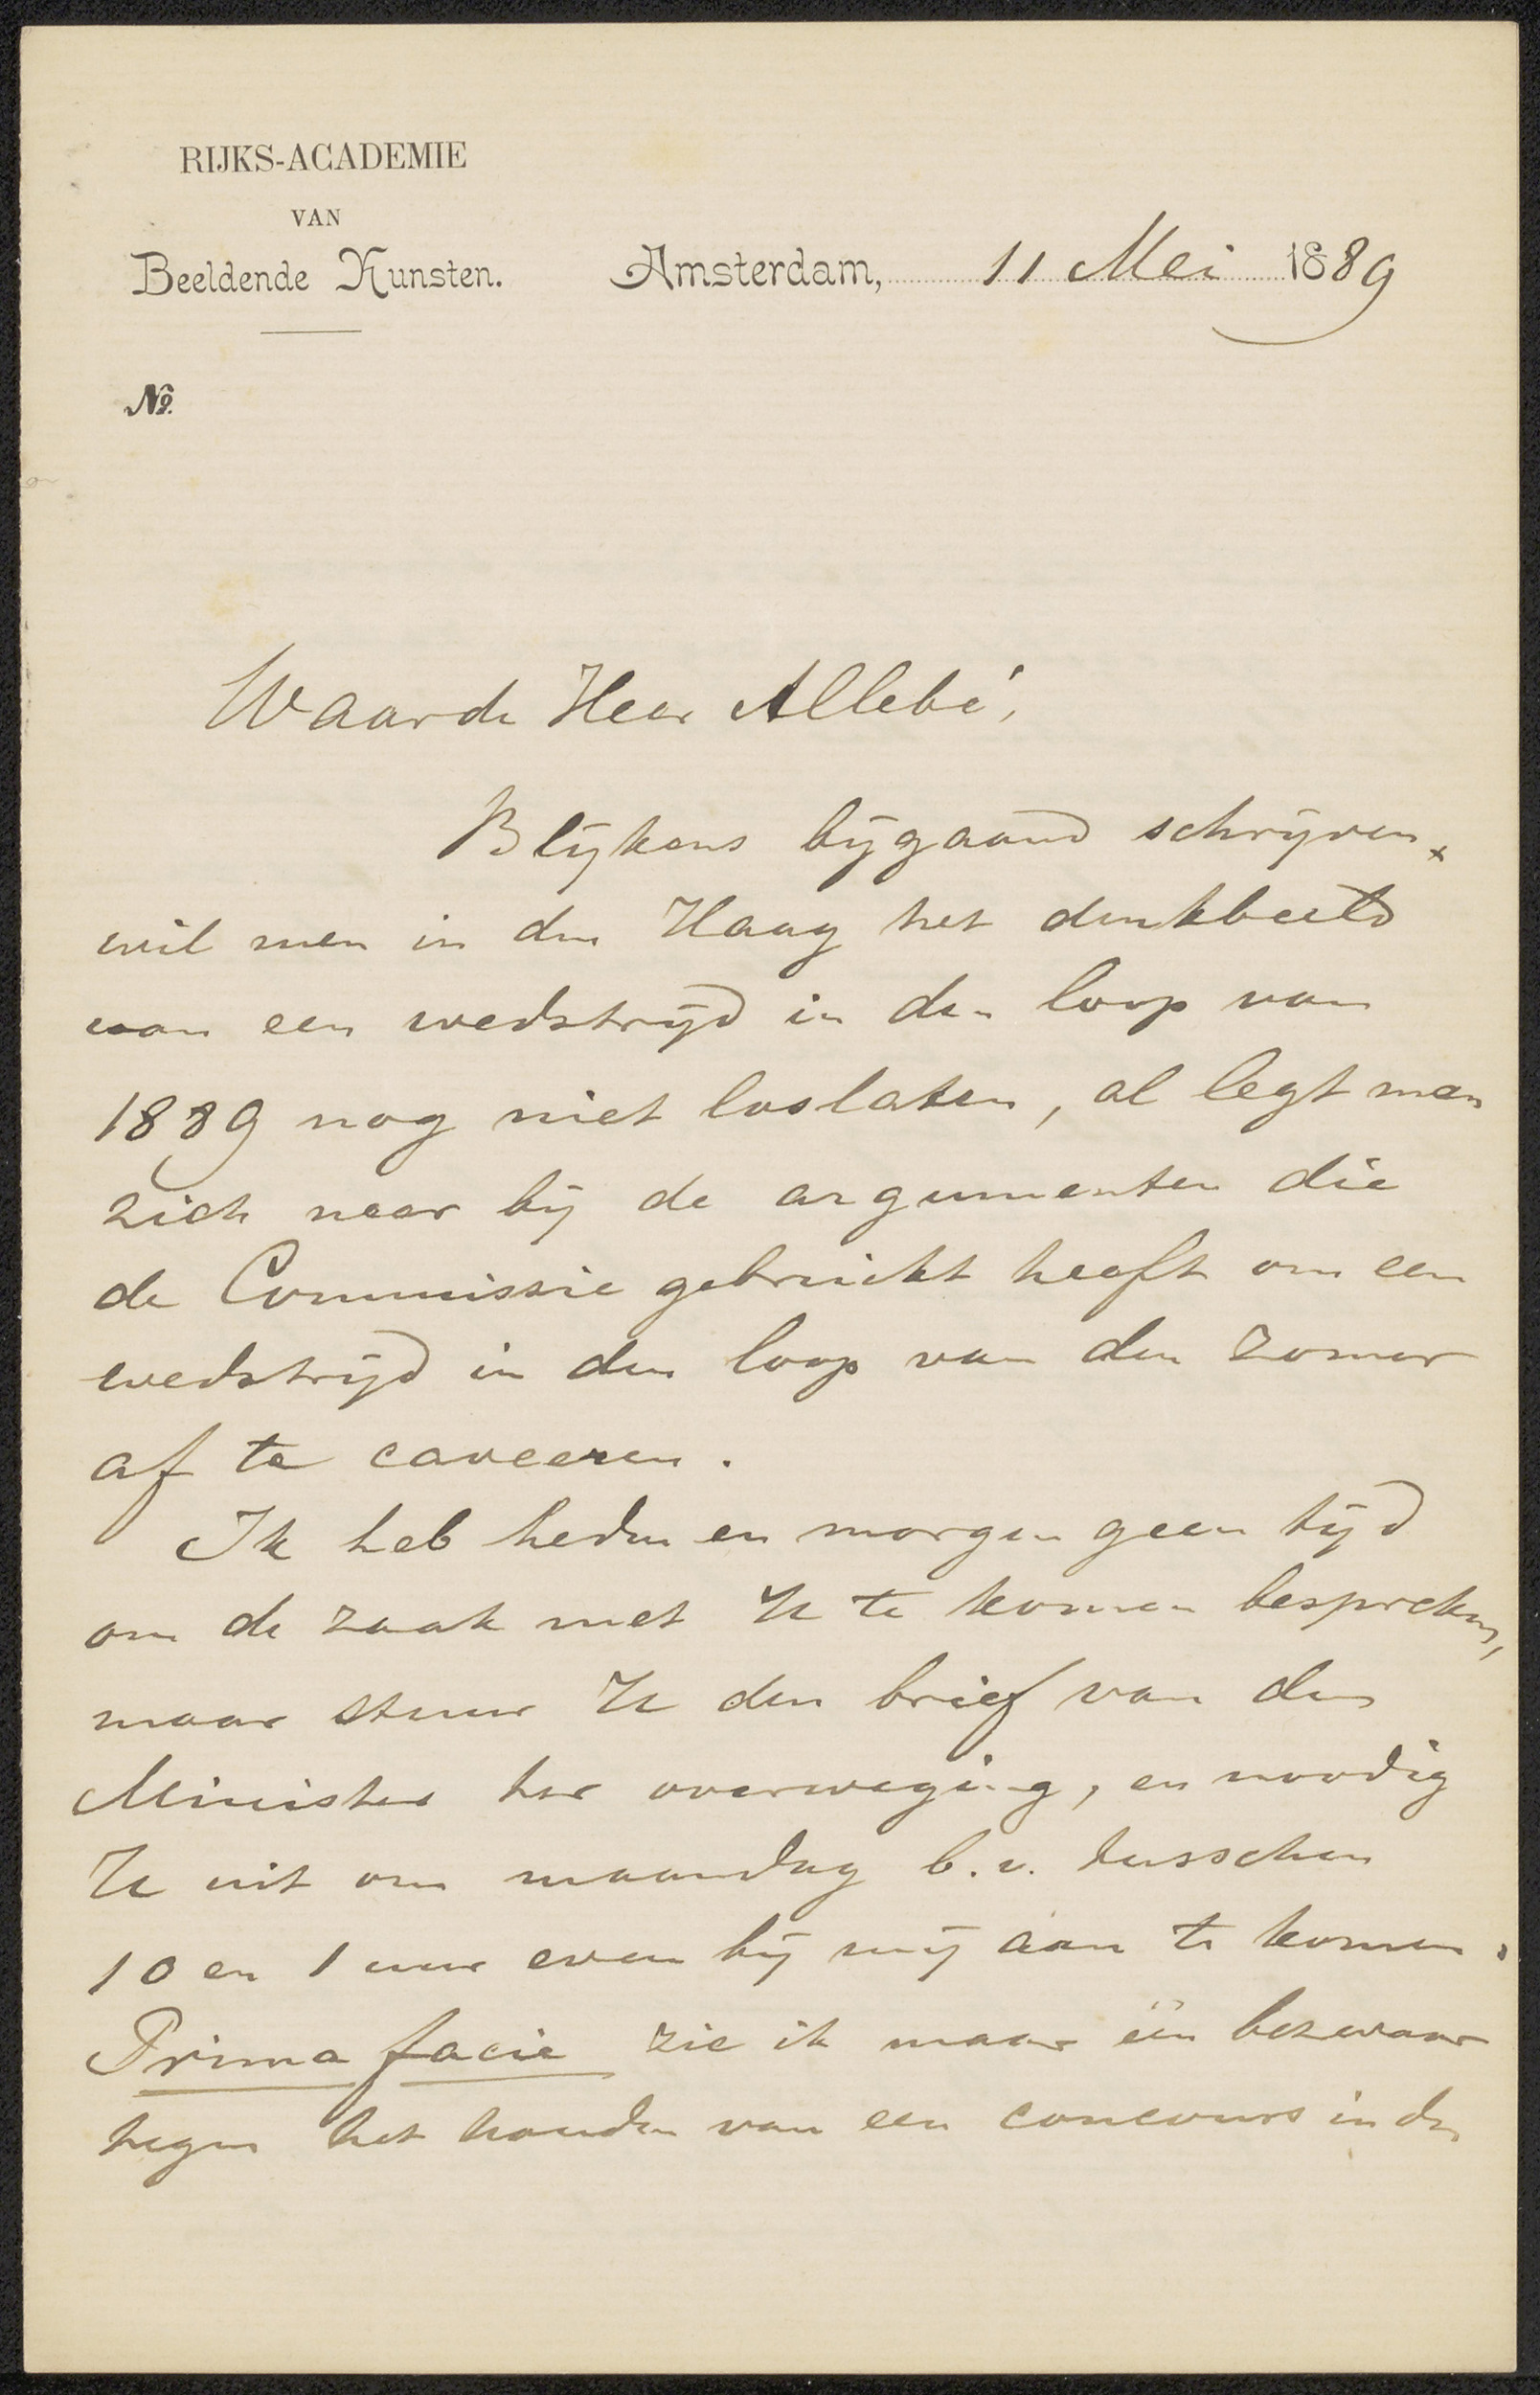 RIJKS-ACADEMIE
VAN
Beeldende Kunsten.
Amsterdam, 11 Mei 1889
No.
Waarde Heer Allebé,
Blijkens bijgaand schrijven
wil men in den Haag het denkbeeld
van een wedstrijd in den loop van
1889 nog niet loslaten, al legt men
zich neer bij de argumenten die
de Commissie gebruikt heeft om een
wedstrijd in den loop van den zomer
af te caveeren.
Ik heb heden en morgen geen tijd
om de zaak met U te komen bespreken,
maar stuur U den brief van den
Minister ter overweging, en noodig
U uit om maandag b.v. tusschen
10 en 1 uur even bij mij aan te komen.
Prima facie zie ik maar één bezwaar
tegen het houden van een concours in den